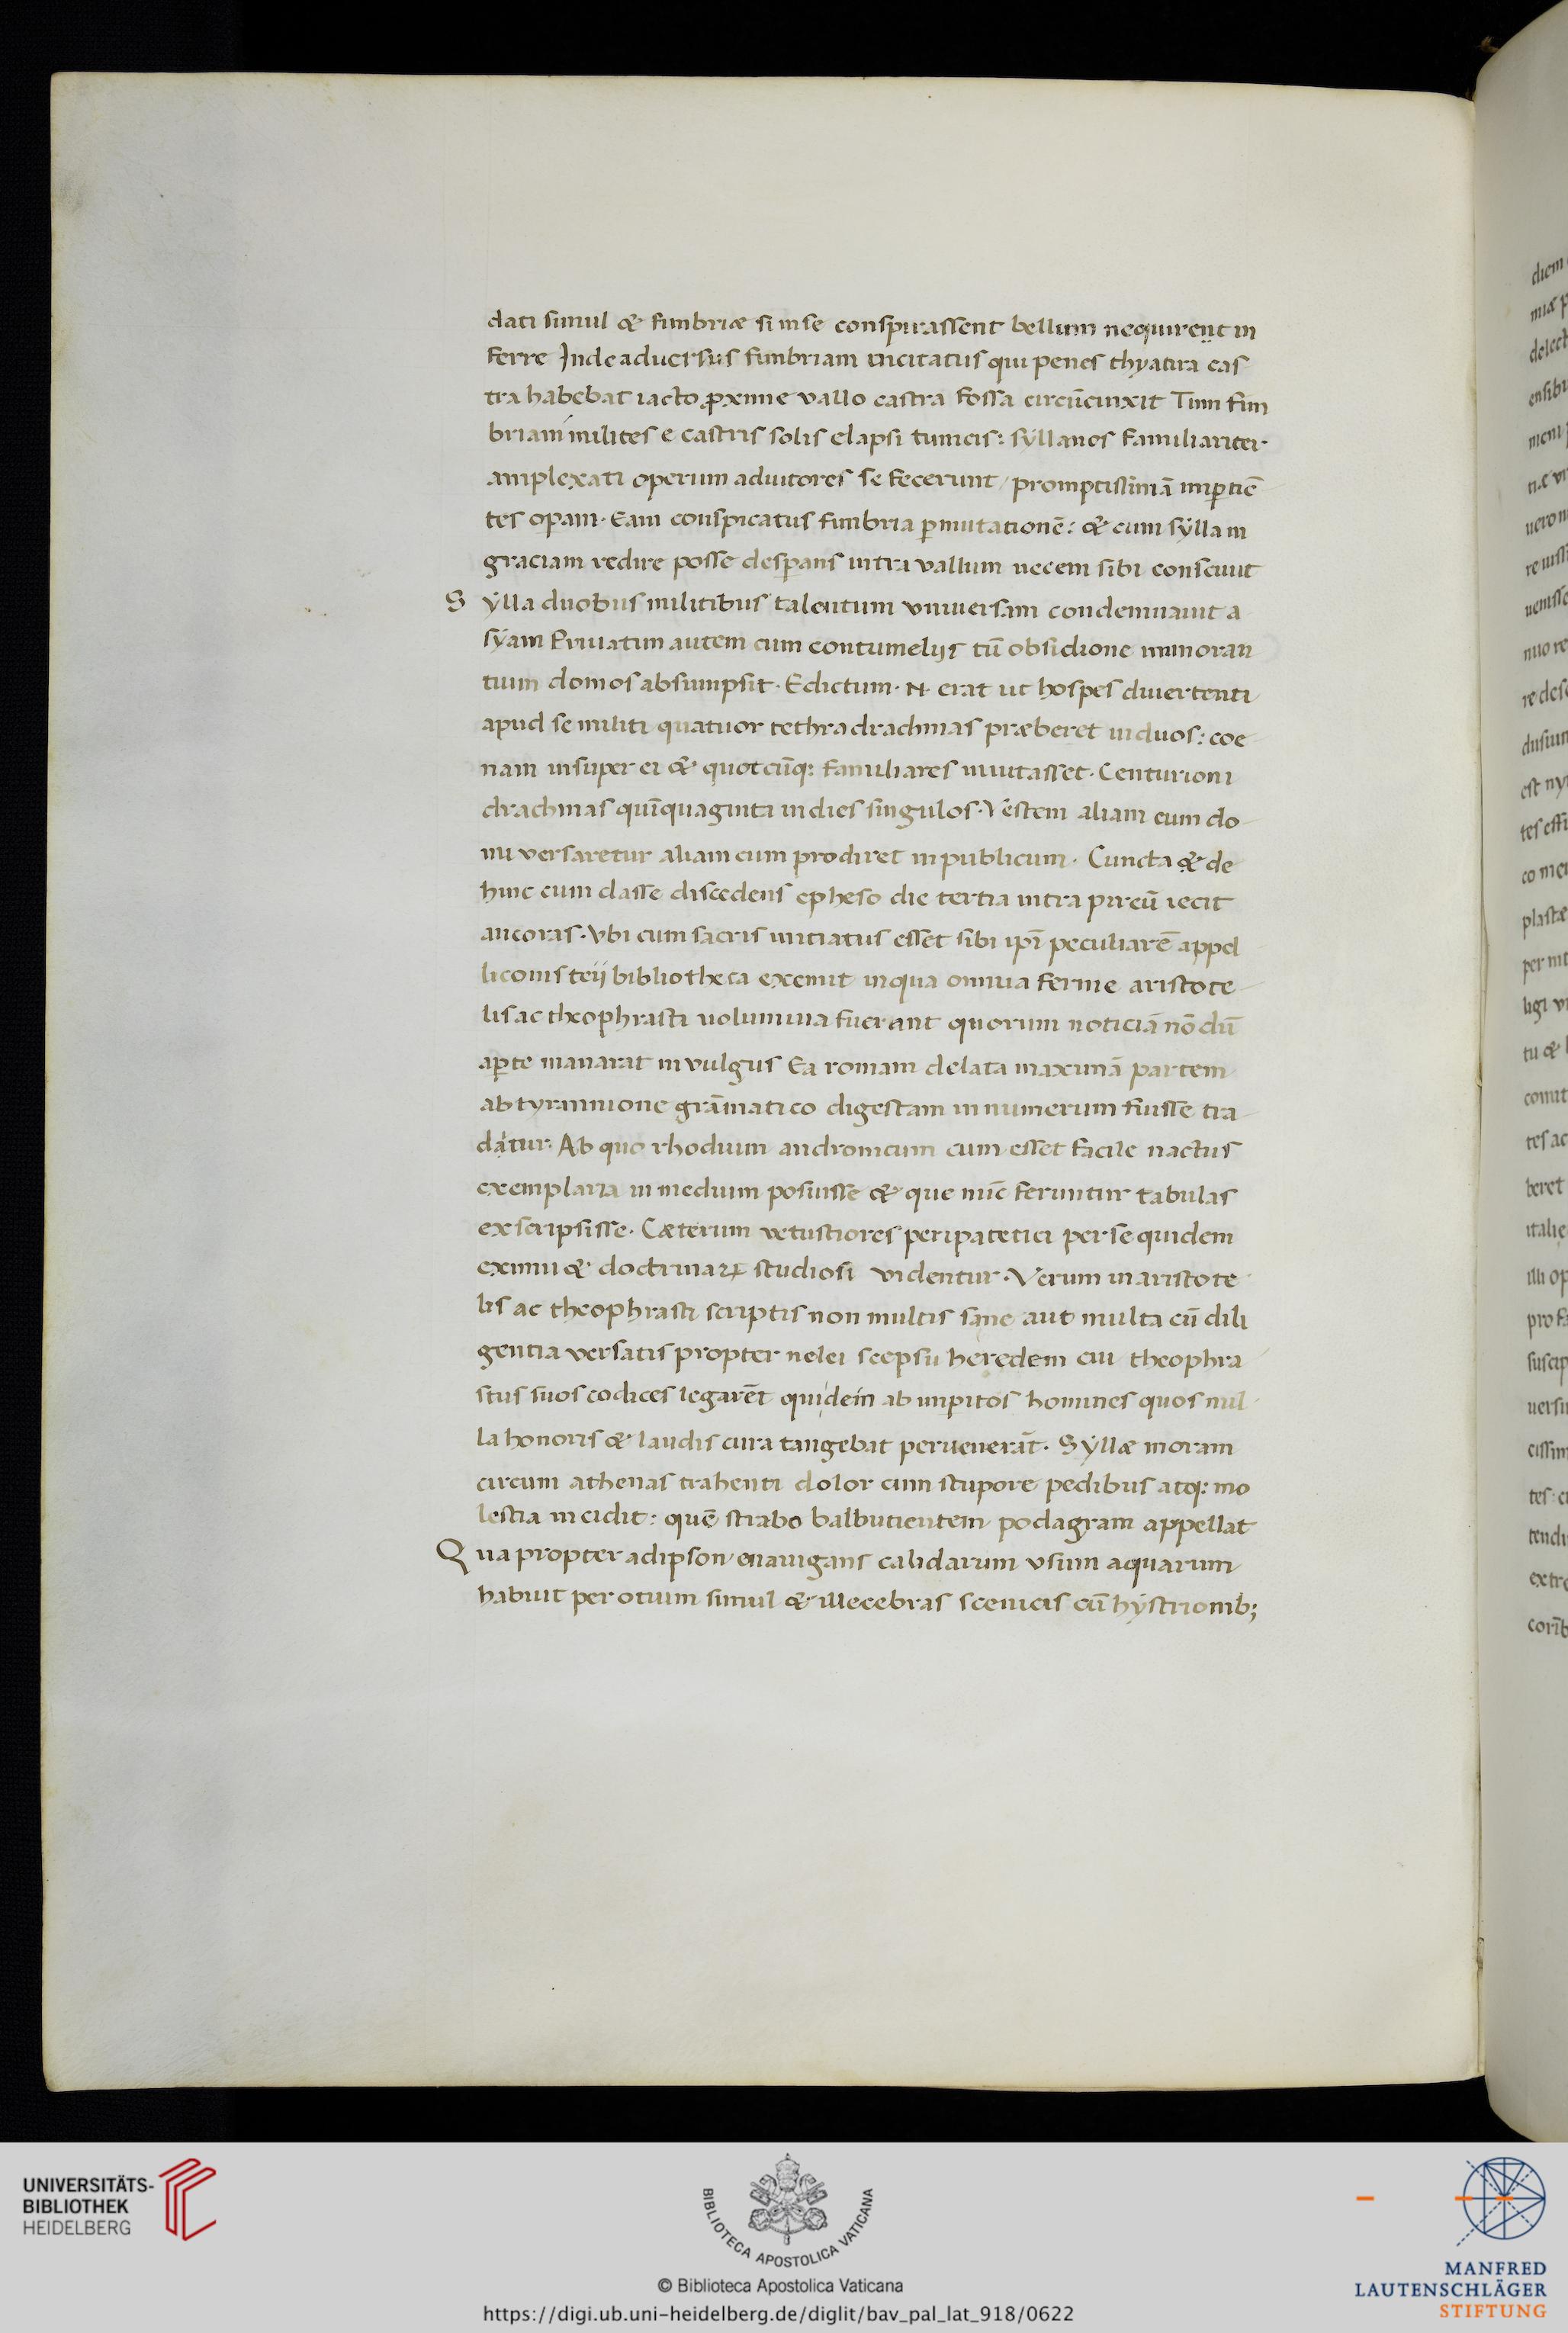 dati simul & fimbriæ si in se conspirassent bellum nequirent in
ferre Inde aduersus fimbriam incitatus qui penes thyatira cas
tra habebat iacto ꝓxime vallo castra fossa circūcinxit Tum fim
briam milites e castris solis elapsi tunicis: syllanos familiariter
amplexati operum adiutores se fecerunt promptissimā imꝑtiē
tes opam. Eam conspicatus fimbria ꝑmutationē: & cum sylla in
graciam redire posse desꝑans intra vallum necem sibi consciuit
Sylla duobus militibus talentum vniuersam condemnauit a
syam Priuatim autem cum contumeliis tū obsidione immoran
tium domos absumpsit. Edictum. N. erat ut hospes diuertenti
apud se militi quatuor tethradrachmas præberet in duos: coe
nam insuper ei & quotcūq: familiares inuitasset. Centurioni
drachmas quīquaginta in dies singulos. Vestem aliam cum do
mi versaretur aliam cum prodiret in publicum. Cuncta & de
hinc cum classe discedens epheso die tertia intra pireū iecit
ancoras. Vbi cum sacris initiatus esset sibi ipī peculiarē appel
liconis teii bibliotheca exemit in qua omnia ferme aristote
lis ac theophrasti uolumina fuerant quorum noticiā nō dū
aꝑte manarat in vulgus Ea romam delata maximā partem
ab tyrannione grāmatico digestam in numerum fuisse tra
datur. Ab quo rhodium andronicum cum esset facile nactus
exemplaria in medium posuisse & que nūc feruntur tabulas
exscripsisse. Cæterum vetustiores peripatetici per se quidem
eximii & doctrinaꝝ studiosi videntur. Verum in aristote
lis ac theophrasti scriptis non multis sane aut multa cū dili
gentia versatis propter nelei scepsii heredem cui theophra
stus suos codices legarēt quidem ab impitos homines quos nul
la honoris & laudis cura tangebat peruenerāt. Syllæ moram
circum athenas trahenti dolor cum stupore pedibus atq: mo
lestia incidit: quē strabo balbutientem podagram appellat
Qua propter adipson enauigans calidarum vsum aquarum
habuit per otium simul & illecebras scenicis cū hystrionib;
diem
delect
ensibu
meni
reuissi
nuore
dusium
est ny
tes effi
plastæ
per nit
tu &
tes ac
beret
italie
illi op
suscip
cissim
tendi
extre
UNIVERSITÄTS-
BIBLIOTHEK
HEIDELBERG
BIBLIOTECA APOSTOLICA VATICANA
© Biblioteca Apostolica Vaticana
https://digi.ub.uni-heidelberg.de/diglit/bav_pal_lat_918/0622
MANFRED
LAUTENSCHLÄGER
STIFTUNG